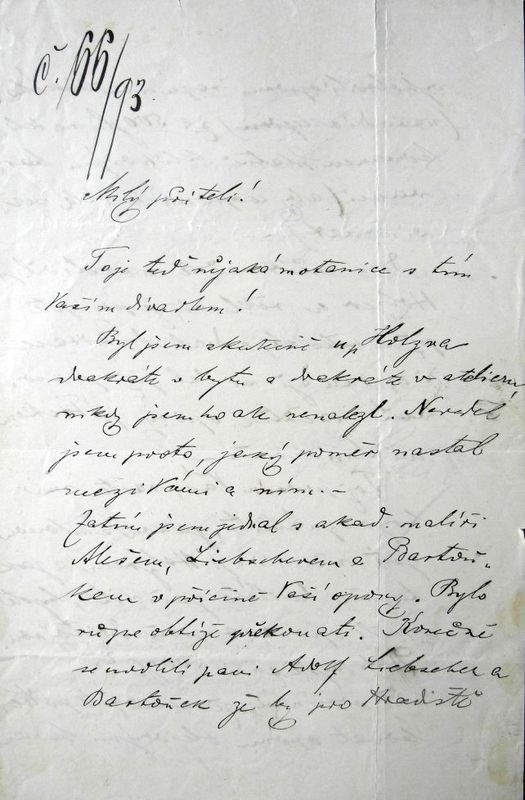 č. 66/93.
Milý příteli!
To je teď nějaká motanice s tím
Vaším divadlem!
Byl jsem skutečně u p Holzra
dvakráte v bytu a dvakráte v atelieru,
nikdy jsem ho ale nenalezl. Nevěděl
jsem proto, jaký poměr nastal
mezi Vámi a ním. –
Zatím jsem jednal s akad. malíři
Alešem, Liebscherem a Bartoň-
kem v příčině Vaší opony. Bylo
různé obtíže překonati. Konečně
se uvolili páni Adolf Liebscher a
Bartoněk že by pro Hradiště